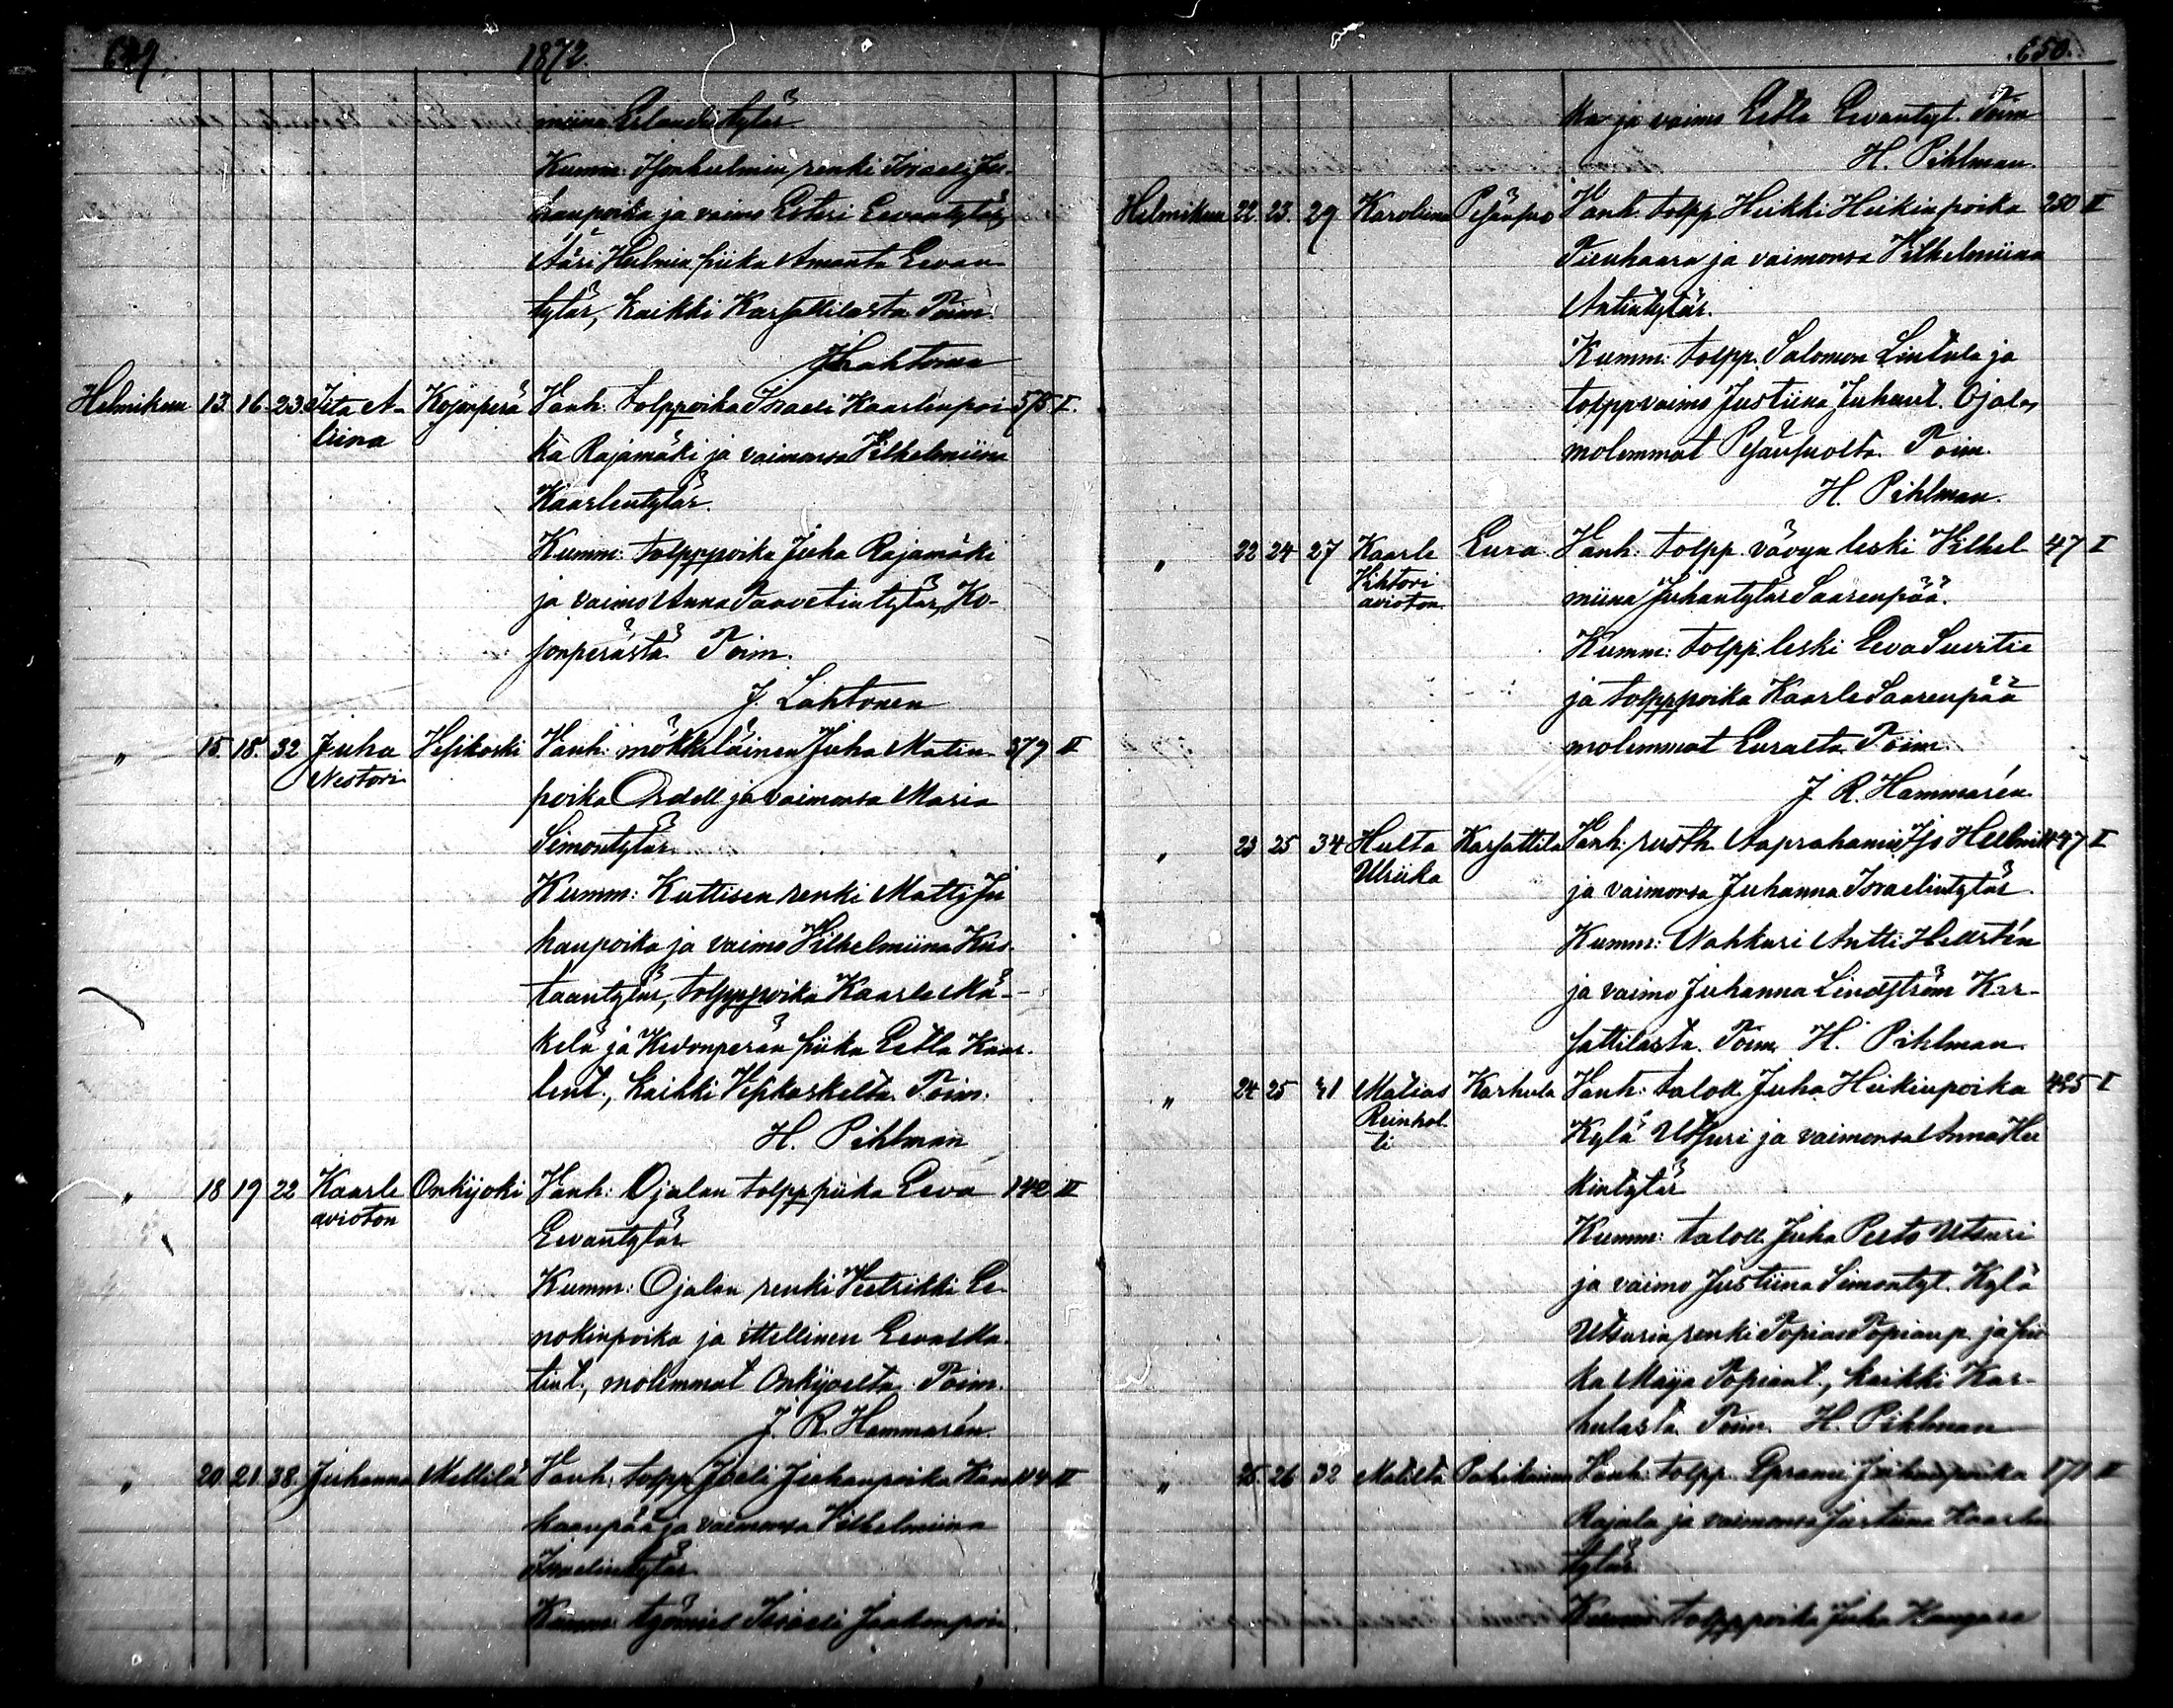 649. 1872.
miina Erlandintytär.
Kumm: Isonhelmin renki Israeli Ju-
hanpoika ja vaimo Esteri Eevantytär,
Ääri Helmin piika Amanta Eevan
tytär, kaikki Karhattilasta. Toim.
J Lahtonen
Helmikuu 13. 16. 23. Iita A- Kojonperä Vanh: tolppoika Israeli Kaarlenpoi- 575 I.
liina ka Rajamäki ja vaimonsa Vilhelmiina
Kaarlentytär.
Kumm: tolppoika Juha Rajamäki
ja vaimo Anna Taavetintytär, Ko-
jonperästä. Toim.
J. Lahtonen
" 15. 18. 32 Juha Vesikoski Vanh: mökkiläinen Juha Matin- 379 II
Nestori poika Ordell ja vaimonsa Maria
Simontytär.
Kumm: Kuttisen renki Matti Ju
hanpoika ja vaimo Vilhelmiina Kus-
taantytär, tolppoika Kaarle Mä-
kelä ja Kedonperän piika Eetla Kaar-
lent., kaikki Vesikoskelta. Toim.
H. Pihlman
" 18 19 22 Kaarle Onkijoki Vanh: Ojalan tolpp piika Eeva 142 II
avioton Eevantytär
Kumm: Ojalan renki Veetrikki Ee-
nokinpoika ja ittellinen Eeva Ma-
tint., molemmat Onkijoelta. Toim.
J. R. Hammarén.
" 20. 21. 38. Juhanna Mellilä Vanh: tolpp Joeli Juhanpoika Kan 114 II
kaanpää ja vaimonsa Vilhelmiina
Israelintytär
Kumm: työmies Israeli Jaakonpoi-
650.
ka ja vaimo Eetla Eevantyt. Toim
H. Pihlman.
Helmikuu 22. 23. 29 Karoliina Pesänsuo Vanh. tolpp. Heikki Heikinpoika 250 II
Tienhaara ja vaimonsa Vilhelmiina
Antintytär.
Kumm: tolpp. Salomon Lintula ja
tolppvaimo Justiina Juhant. Ojala,
molemmat Pesänsuolta. Toim.
H. Pihlman.
" 22 24 27 Kaarle Eura Vanh: tolpp. vävyn leski Vilhel 47 I
Vihtori miina Juhantytär Saarenpää.
avioton Kumm: tolpp. leski Eeva Suertie
ja tolppoika Kaarle Saarenpää
molemmat Euralta. Toim.
J R. Hammarén.
" 23 25 34 Hulta Karhattila Vanh: rusth. Aaprahami Iso Heelmi 447 I
Ulriika ja vaimonsa Juhanna Israelintytär.
Kumm: Nahkuri Antti Hellstén
ja vaimo Juhanna Lindström Kar-
hattilasta. Toim. H. Pihlman.
" 24 25 41 Matias Karhula Vanh: taloll. Juha Heikinpoika 425 I
Reinhol- Kylä Utsuri ja vaimonsa Anna Hei
ti kintytär
Kumm: taloll. Juha Peito Utsuri
ja vaimo Justiina Simontyt. Kylä
Utsurin renki Topias Topianp. ja pii
ka Maija Topiant., kaikki Kar-
hulasta. Toim. H. Pihlman
" 25 26 32 Matilta Vanh: tolpp. Eprami Juhanpoika 171 II
Rajala ja vaimonsa Justiina Kaarlen
tytär.
Kumm: tolppoika Juha Kangare